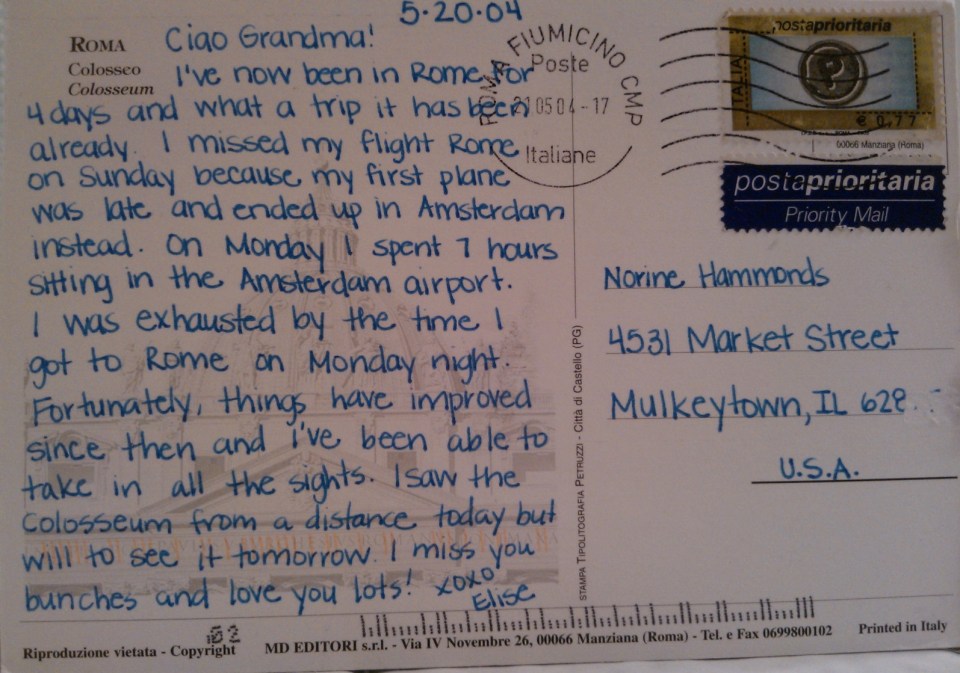 5·20·04
ROMA
Colosseo
Colosseum
Ciao Grandma!
I've now been in Rome for
4 days and what a trip it has been
already. I missed my flight Rome
on Sunday because my first plane
was late and ended up in Amsterdam
instead. On Monday I spent 7 hours
sitting in the Amsterdam airport.
I was exhausted by the time I
got to Rome on Monday night.
Fortunately, things have improved
since then and I've been able to
take in all the sights. I saw the
Colosseum from a distance today but
will to see it tomorrow. I miss you
bunches and love you lots! xoxo
Elise
ROMA FIUMICINO CMP
Poste
21 05 04 - 17
Italiane
postaprioritaria
ITALIA
€ 0,77
00066 Manziana (Roma)
postaprioritaria
Priority Mail
Norine Hammonds
4531 Market Street
Mulkeytown, IL 628
U.S.A.
STAMPA TIPOLITOGRAFIA PETRUZZI - Città di Castello (PG)
Riproduzione vietata - Copyright
MD EDITORI s.r.l. - Via IV Novembre 26, 00066 Manziana (Roma) - Tel. e Fax 0699800102
Printed in Italy